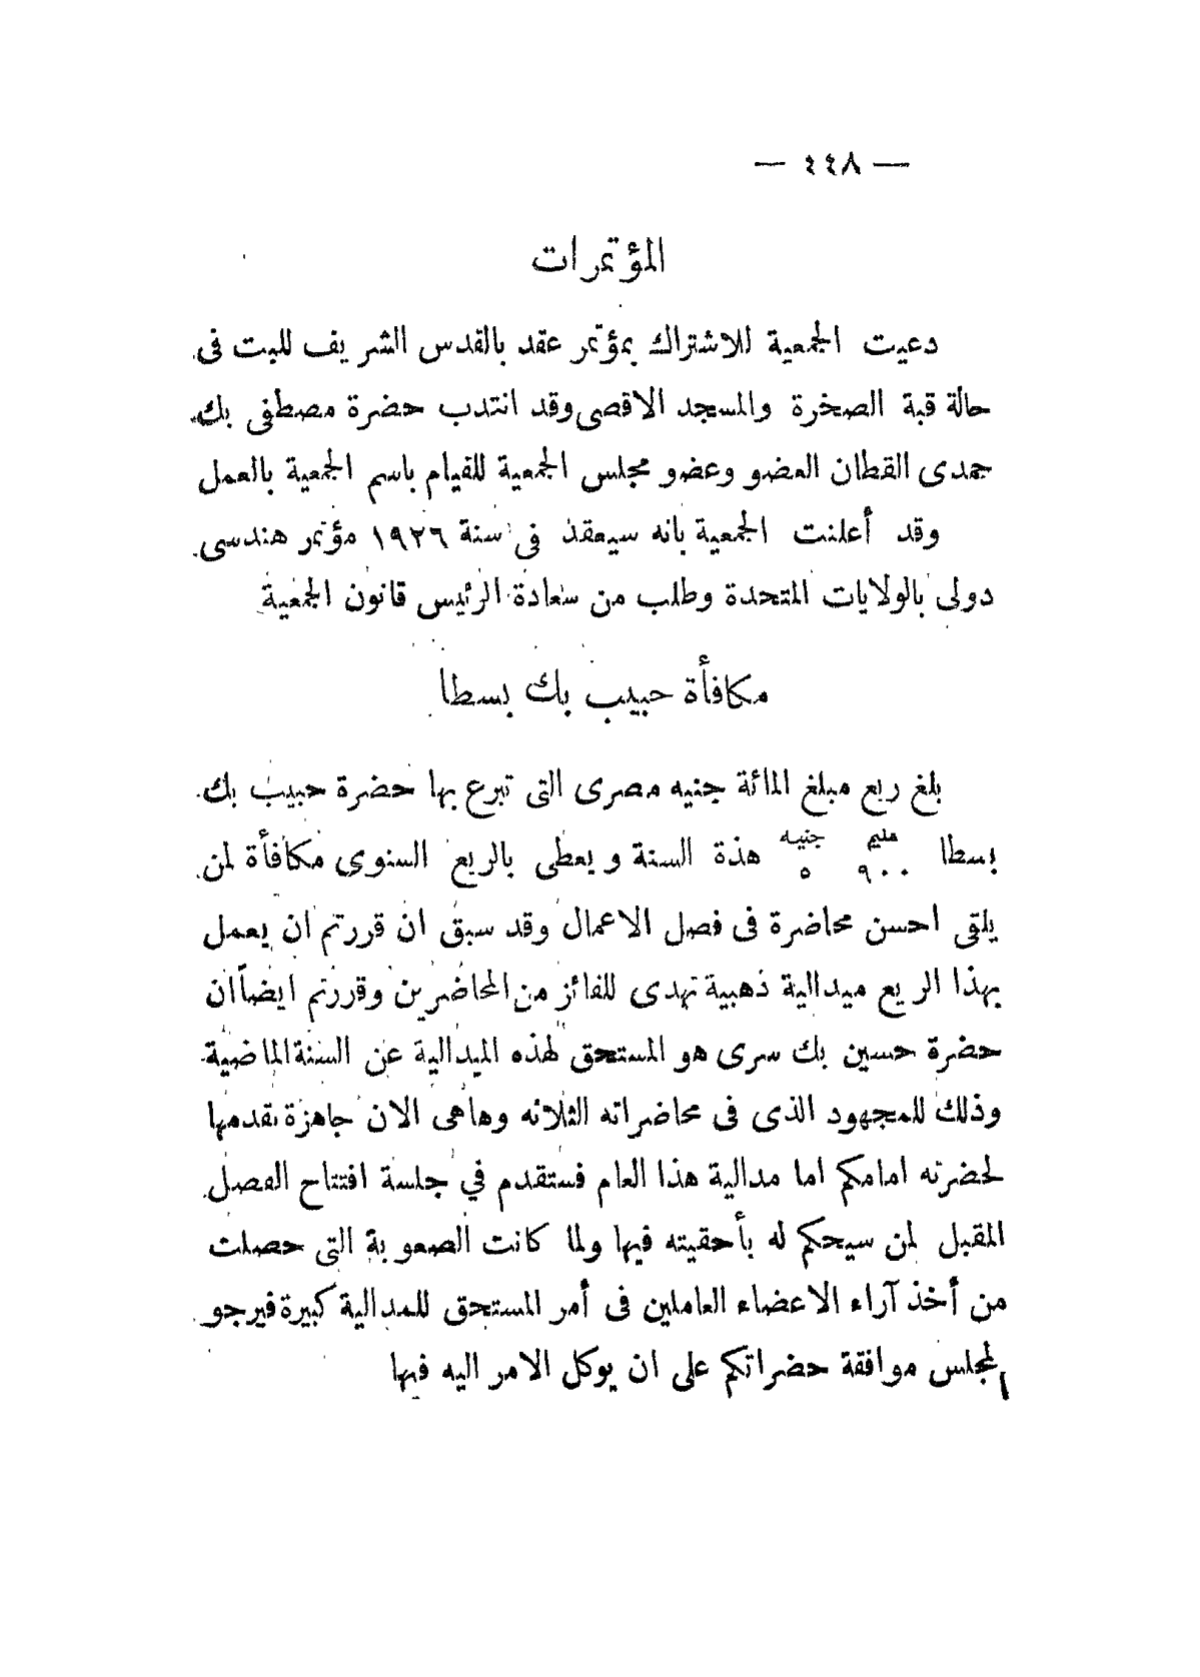 — ٤٤٨ —
المؤتمرات
دعيت الجمعية للاشتراك بمؤتمر عقد بالقدس الشريف للبت فى
حالة قبة الصخرة والمسجد الاقصى وقد انتدب حضرة مصطفى بك
حمدى القطان العضو وعضو مجلس الجمعية للقيام باسم الجمعية بالعمل
وقد أعلنت الجمعية بانه سيعقد فى سنة ١٩٢٦ مؤتمر هندسى
دولى بالولايات المتحدة وطلب من سعادة الرئيس قانون الجمعية
مكافأة حبيب بك بسطا
بلغ ريع مبلغ المائة جنيه مصرى التى تبرع بها حضرة حبيب بك
بسطا مليم ٩٠٠ جنيه ٥ هذة السنة ويعطى بالريع السنوى مكافأة لمن
يلقى احسن محاضرة فى فصل الاعمال وقد سبق ان قررتم ان يعمل
بهذا الريع ميدالية ذهبية تهدى للفائز من المحاضرين وقررتم ايضاً ان
حضرة حسين بك سرى هو المستحق لهذه الميدالية عن السنة الماضية
وذلك للمجهود الذى فى محاضراته الثلاثه وهاهى الان جاهزة نقدمها
لحضرته امامكم اما مدالية هذا العام فستقدم في جلسة افتتاح الفصل
المقبل لمن سيحكم له بأحقيته فيها ولما كانت الصعوبة التى حصلت
من أخذ آراء الاعضاء العاملين فى أمر المستحق للمدالية كبيرة فيرجو
المجلس موافقة حضراتكم على ان يوكل الامر اليه فيها